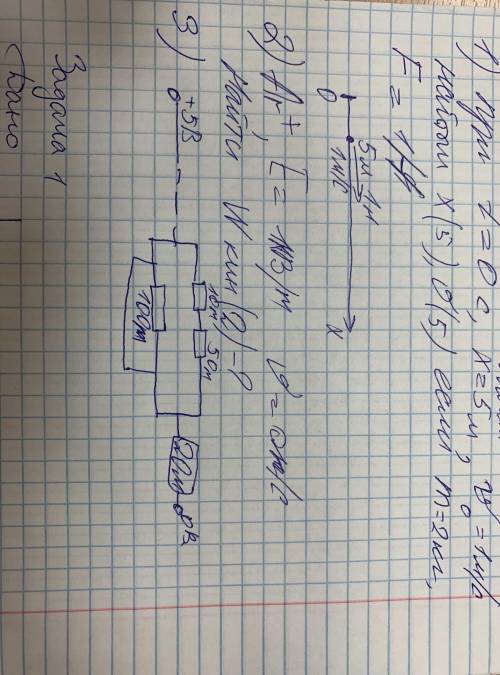 1) при t=0 с, x=5м, v₀=1м/с
найти x(5), v(5) если m=2кг,
F = 1Н
0 5м 1Н
1м/с x
2) Ar⁺, E = 1В/м v=0м/с
Найти Wкин(2)-?
3) +5В
1Ом 5Ом
10Ом 2Ом 0В
Задача 1
Дано